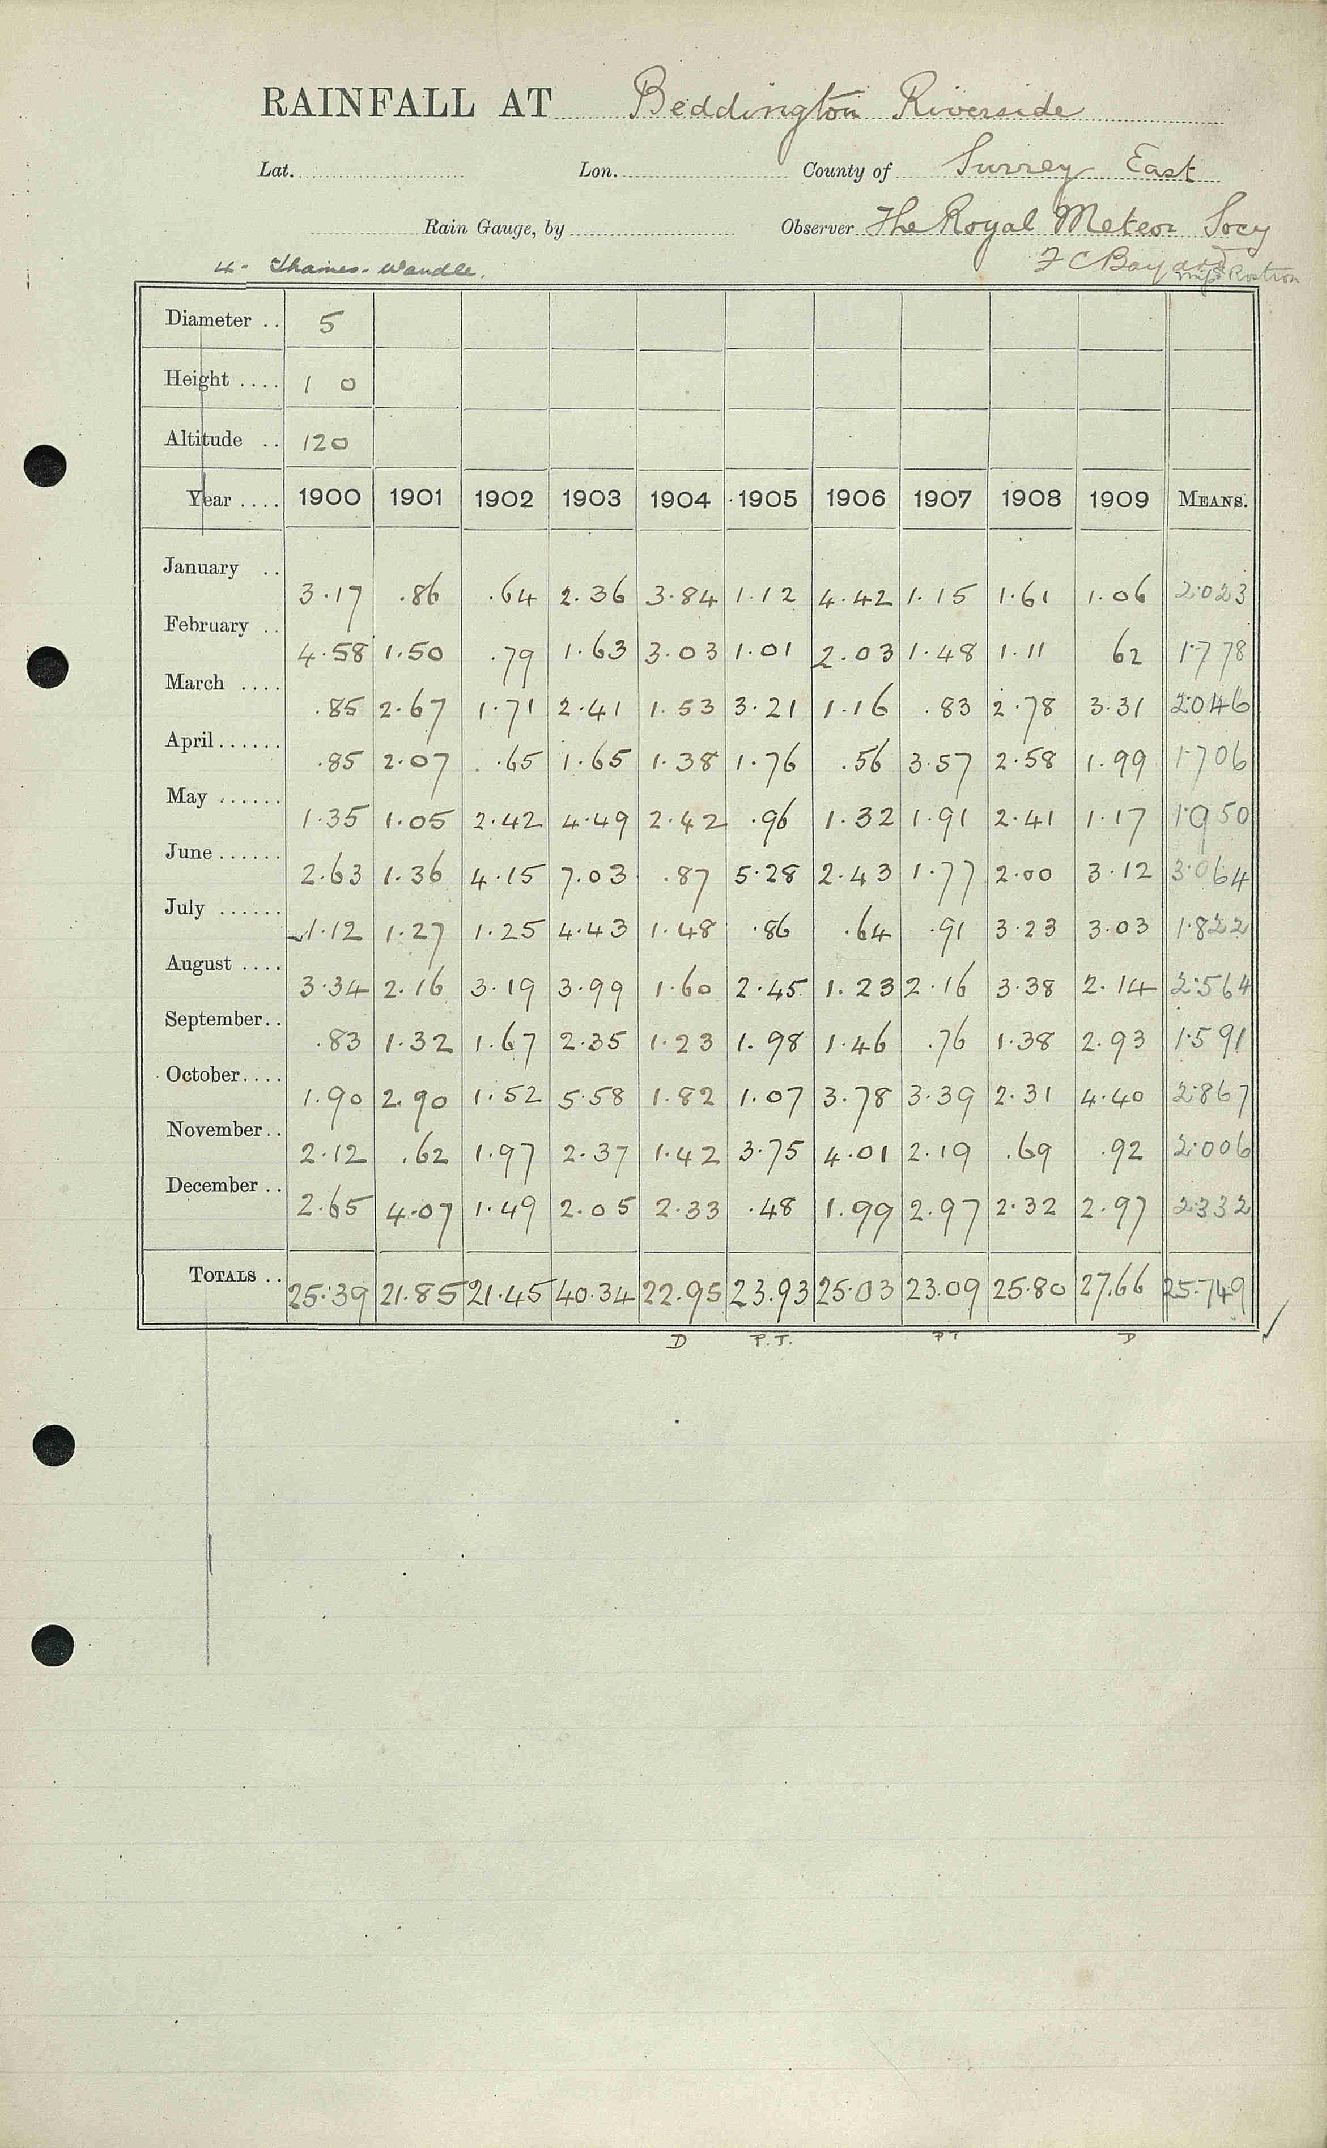 RAINFALL AT Beddington Riverside
Lat. Lon. County of Surrey East
Rain Gauge, by Observer The Royal Meteor Socy
4. Thames. Wandle. F C Bayard
Miss Rostron
Diameter .. 5
Height .... 1 0
Altitude .. 120
Year .... 1900 1901 1902 1903 1904 1905 1906 1907 1908 1909 MEANS.
January .. 3.17 .86 .64 2.36 3.84 1.12 4.42 1.15 1.61 1.06 2.023
February .. 4.58 1.50 .79 1.63 3.03 1.01 2.03 1.48 1.11 62 1.778
March .... .85 2.67 1.71 2.41 1.53 3.21 1.16 .83 2.78 3.31 2.046
April ...... .85 2.07 .65 1.65 1.38 1.76 .56 3.57 2.58 1.99 1.706
May ...... 1.35 1.05 2.42 4.49 2.42 .96 1.32 1.91 2.41 1.17 1.950
June ...... 2.63 1.36 4.15 7.03 .87 5.28 2.43 1.77 2.00 3.12 3.064
July ...... 1.12 1.27 1.25 4.43 1.48 .86 .64 .91 3.23 3.03 1.822
August .... 3.34 2.16 3.19 3.99 1.60 2.45 1.23 2.16 3.38 2.14 2.564
September.. .83 1.32 1.67 2.35 1.23 1.98 1.46 .76 1.38 2.93 1.591
October.... 1.90 2.90 1.52 5.58 1.82 1.07 3.78 3.39 2.31 4.40 2.867
November.. 2.12 .62 1.97 2.37 1.42 3.75 4.01 2.19 .69 .92 2.006
December .. 2.65 4.07 1.49 2.05 2.33 .48 1.99 2.97 2.32 2.97 2.332
TOTALS .. 25.39 21.85 21.45 40.34 22.95 23.93 25.03 23.09 25.80 27.66 25.749
D P.T. PT D